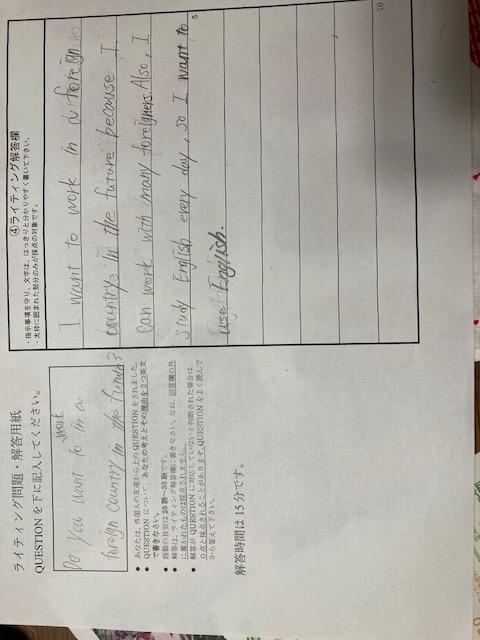 ライティング問題・解答用紙
QUESTION を下に記入してください。
work
Do you want to in a
foreign country in the future?
● あなたは、外国人の友達から上の QUESTION をされました。
● QUESTION について、あなたの考えとその理由を2つ英文
で書きなさい。
● 語数の目安は 25 語～35 語です。
● 解答は、ライティング解答欄に書きなさい。なお、解答欄の外
に書かれたものは採点されません。
● 解答が QUESTION に対応していないと判断された場合は、
0点と採点されることがあります。QUESTION をよく読んで
から答えて下さい。
解答時間は 15 分です。
④ライティング解答欄
・指示事項を守り、文字は、はっきりと分かりやすく書いて下さい。
・太枠に囲まれた部分のみが採点の対象です。
I want to work in a foreign
country in the future because I
can work with many foreigners. Also, I
study English every day, so I want to
5
use English.
10